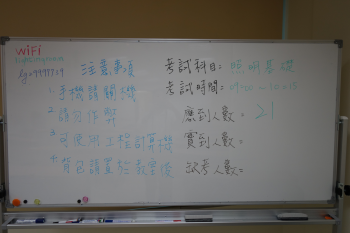 WiFi
注意事項
1. 手機請關機
2. 請勿作弊
3. 可使用工程計算機
4. 背包請置於教室後
考試科目: 照明基礎
考試時間:
應到人數= 21
實到人數=
缺考人數=